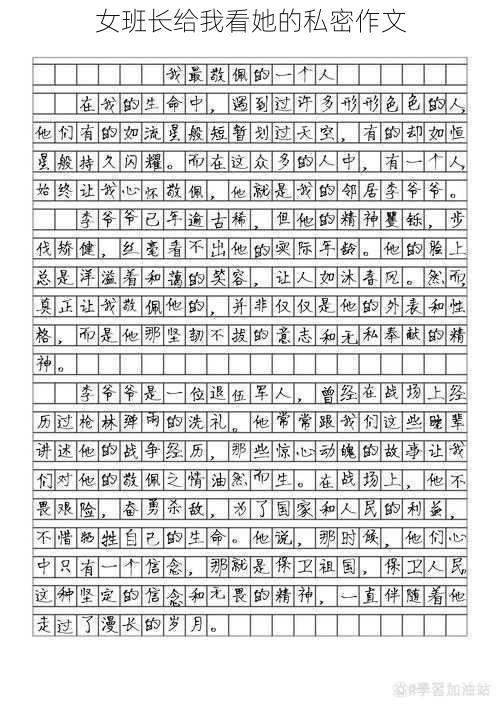 女班长给我看她的私密作文
我最敬佩的一个人
在我的生命中，遇到过许多形形色色的人，
他们有的如流星般短暂划过天空，有的却如恒
星般持久闪耀。而在这众多的人中，有一个人，
始终让我心怀敬佩，他就是我的邻居李爷爷。
李爷爷已年逾古稀，但他的精神矍铄，步
伐矫健，丝毫看不出他的实际年龄。他的脸上
总是洋溢着和蔼的笑容，让人如沐春风。然而，
真正让我敬佩他的，并非仅仅是他的外表和性
格，而是他那坚韧不拔的意志和无私奉献的精
神。
李爷爷是一位退伍军人，曾经在战场上经
历过枪林弹雨的洗礼。他常常跟我们这些晚辈
讲述他的战争经历，那些惊心动魄的故事让我
们对他的敬佩之情油然而生。在战场上，他不
畏艰险，奋勇杀敌，为了国家和人民的利益，
不惜牺牲自己的生命。他说，那时候，他们心
中只有一个信念，那就是保卫祖国，保卫人民。
这种坚定的信念和无畏的精神，一直伴随着他
走过了漫长的岁月。
@學習加油站